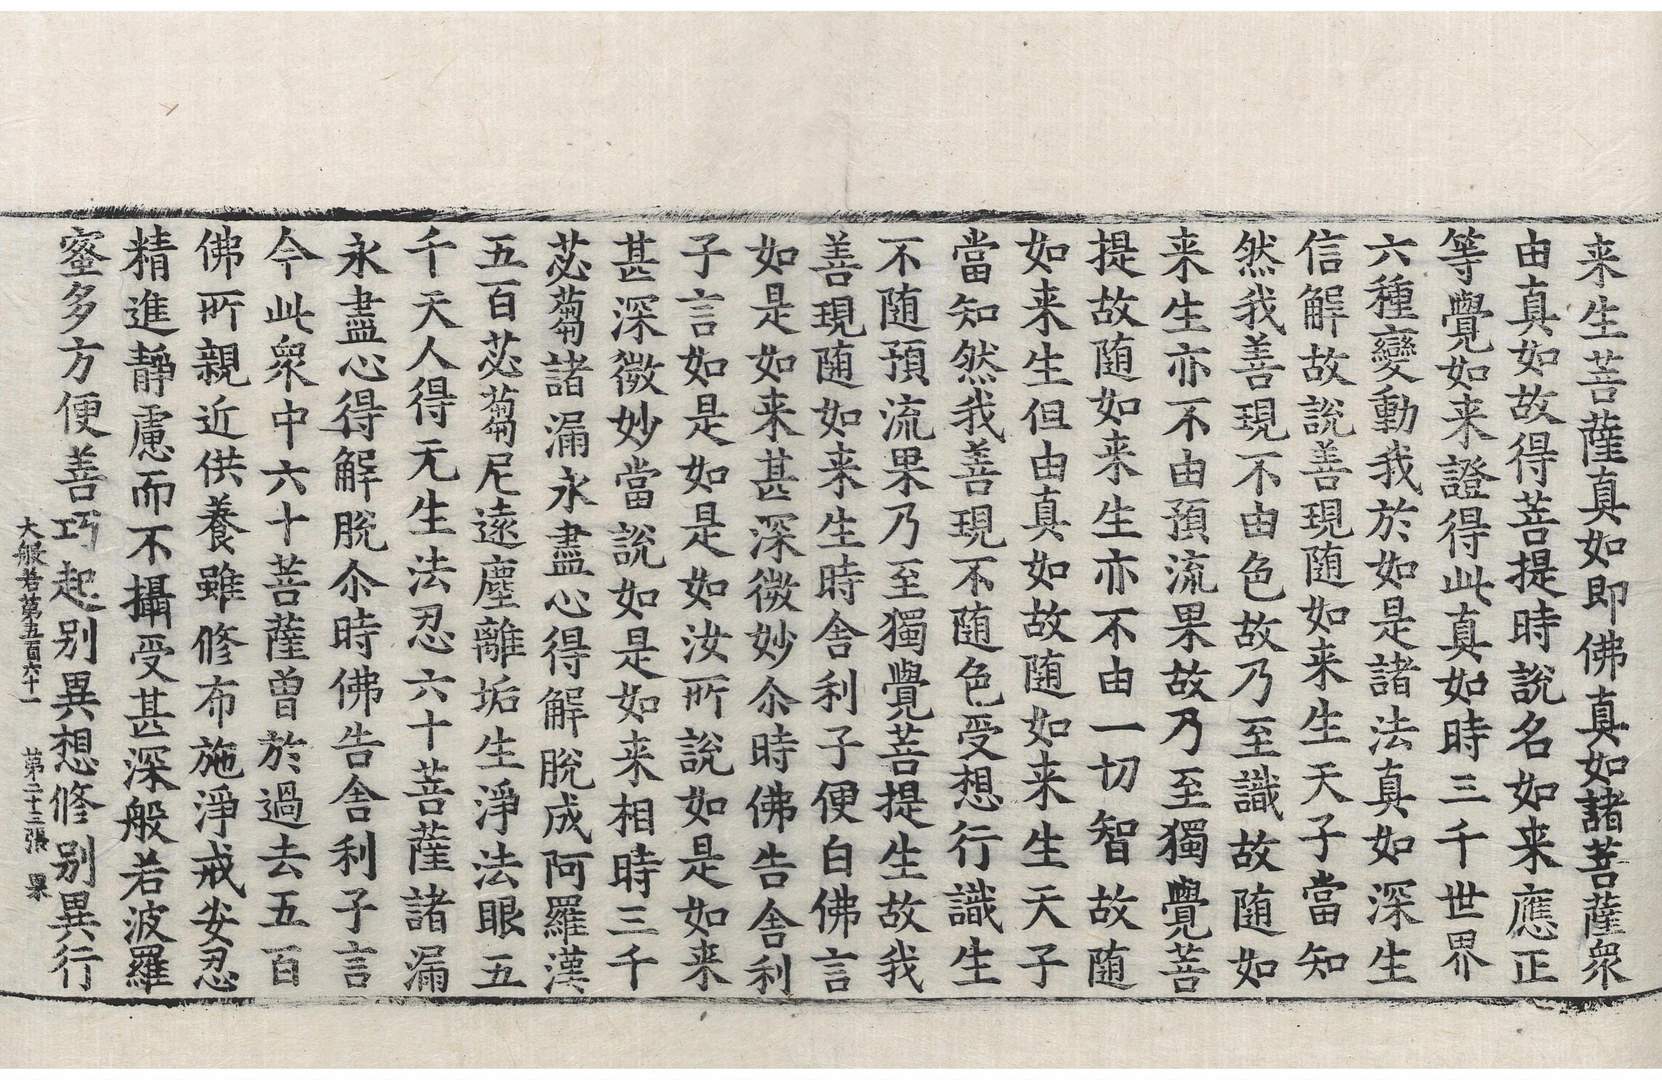 来生菩薩真如即佛真如諸菩薩衆
由真如故得菩提時說名如来應正
等覺如来證得此真如時三千世界
六種變動我於如是諸法真如深生
信解故說善現随如来生天子當知
然我善現不由色故乃至識故随如
来生亦不由預流果故乃至獨覺菩
提故随如来生亦不由一切智故随
如来生但由真如故随如来生天子
當知然我善現不随色受想行識生
不随預流果乃至獨覺菩提生故我
善現随如来生時舎利子便白佛言
如是如来甚深微妙尒時佛告舎利
子言如是如是如汝所說如是如来
甚深微妙當說如是如来相時三千
苾蒭諸漏永盡心得解脫成阿羅漢
五百苾蒭尼遠塵離垢生淨法眼五
千天人得无生法忍六十菩薩諸漏
永盡心得解脫尒時佛告舎利子言
今此衆中六十菩薩曽於過去五百
佛所親近供養雖修布施淨戒安忍
精進静慮而不攝受甚深般若波羅
蜜多方便善巧起別異想修別異行
大般若第五百六十一 第二十三張 果